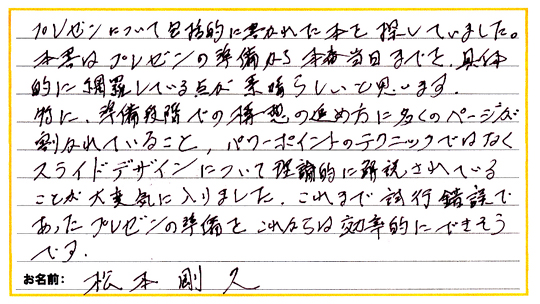 プレゼンについて包括的に書かれた本を探していました。
本書はプレゼンの準備から本番当日までを、具体
的に網羅している点が素晴らしいと思います。
特に、準備段階での構想の進め方に多くのページが
割かれていること、パワーポイントのテクニックではなく
スライドデザインについて理論的に解説されている
ことが大変気に入りました。これまで試行錯誤で
あったプレゼンの準備をこれからは効率的にできそう
です。
お名前: 松本剛久